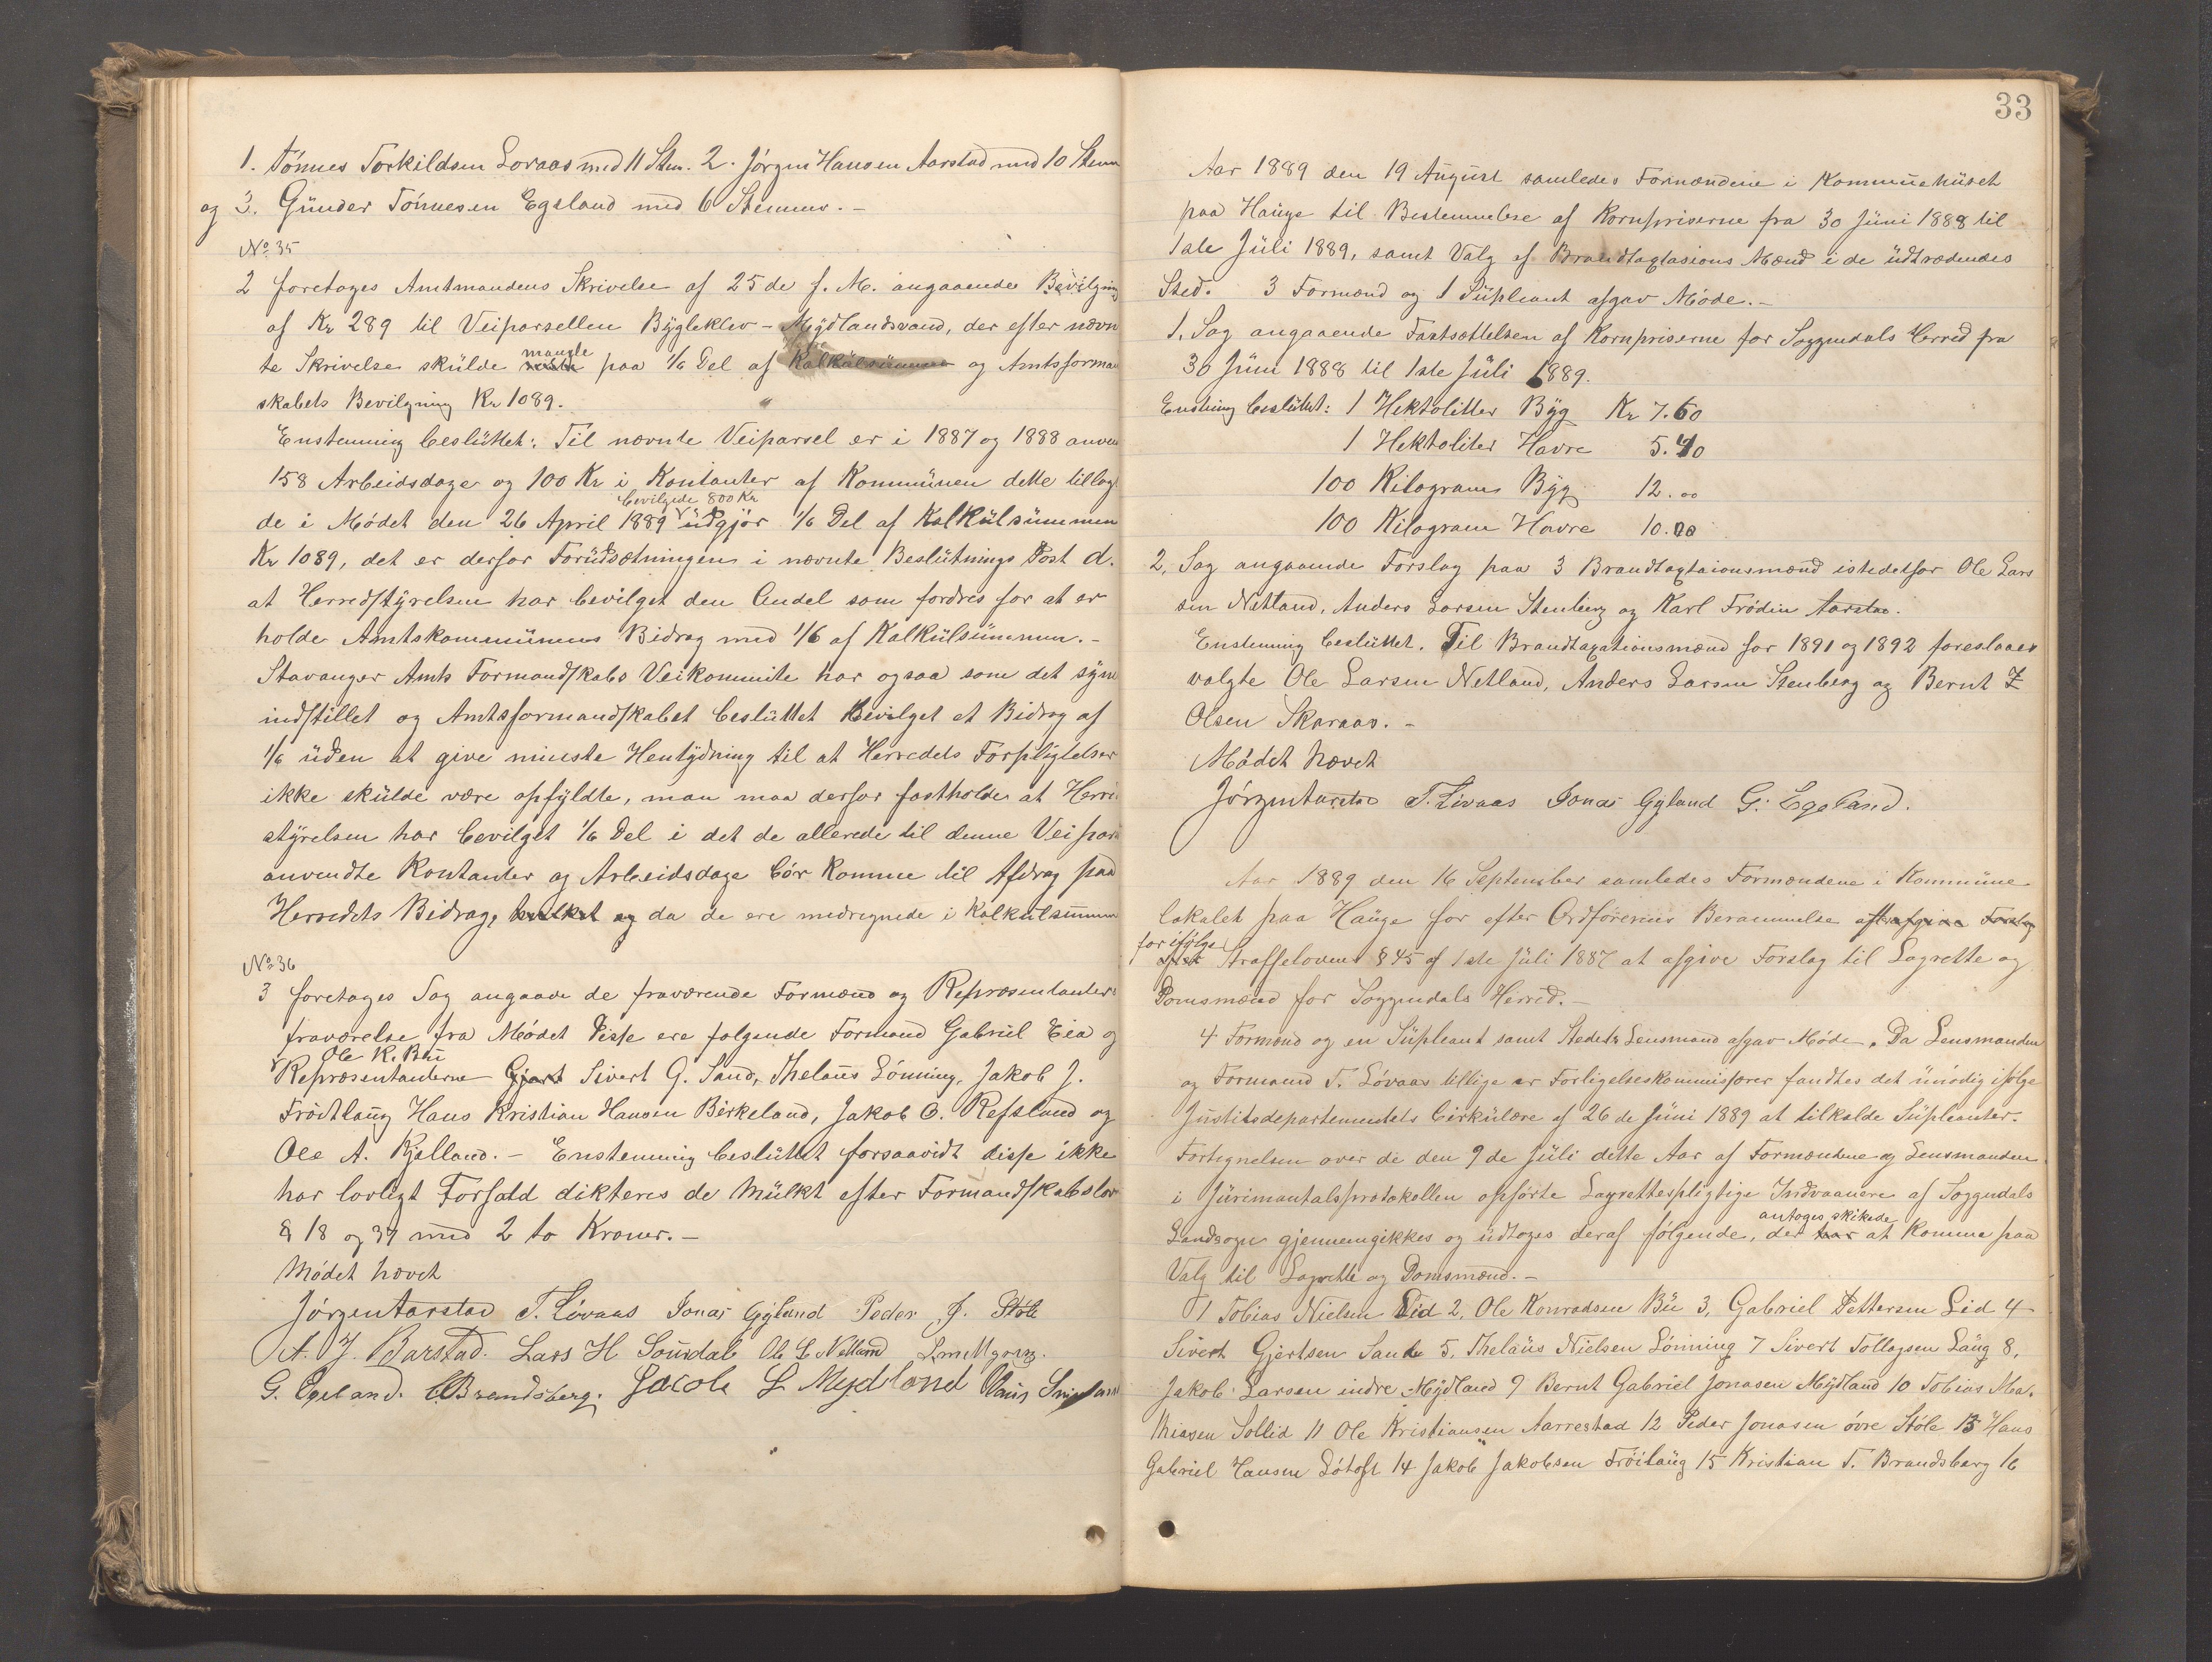 1. Tönnes Torkildsen Lovaas med 11 Stem. 2. Jörgen Hansen Aarstad med 10 Stem
og 3. Gunder Tönnesen Egeland med 6 Stemmer. -
No 35
2 foretoges Amtmandens Skrivelse af 25de f. M. angaaende Bevilgning
af Kr 289 til Veiparsellen Bygleklev - Mydlandsvand, der efter nævn
te Skrivelse skulde mangle paa 1/6 Del af Kalkulsummen og Amtsforman
skabets Bevilgning Kr 1089.
Enstemmig besluttet: Til nævnte Veiparsel er i 1887 og 1888 anven
158 Arbeidsdage og 100 Kr i Kontanter af Kommunen dette tillag
bevilgede 800 Kr
de i Mödet den 26 April 1889 udgjör 1/6 Del af Kalkulsummen
Kr 1089, det er derfor Forudsætningen i nævnte Beslutnings Post d.
at Herredstyrelsen har bevilget den Andel som fordres for at er
holde Amtskommunens Bidrag med 1/6 af Kalkulsummen. -
Stavanger Amts Formandskabs Veikommite har ogsaa som det syne
indstillet og Amtsformandskabet besluttet bevilget et Bidrag af
1/6 uden at give minste Hentydning til at Herredets Forpligtelser
ikke skulde være opfyldte, man maa derfor fastholde at Herre
styrelsen har bevilget 1/6 Del i det de allerede til denne Veipar
anvendte Kontanter og Arbeidsdage bör komme til Afdrag paa
Herredets Bidrag, hvilket og da de ere medregnede i Kalkulsumme
No 36
3 foretoges Sag angaae de fraværende Formænd og Repræsentanters
fraværelse fra Mödet Disse ere følgende Formand Gabriel Eia og
Ole K. Bu
Repræsentanterne Gjert Sivert G. Sand, Thelaus Lönning, Jakob J.
Fröitlaug Hans Kristian Hansen Birkeland, Jakob O. Refsland og
Ole A. Kjelland. - Enstemmig besluttet forsaavidt disse ikke
har lovligt Forfald dikteres de Mulkt efter Formandskabslov
§ 18 og 37 med 2 to Kroner. -
Mödet hævet
Jörgen Aarstad T. Lovaas Jonas Gyland Peder J. Stöle
A. J. Barstad. Lars H Soundal Ole L Netland
G. Egeland. Brandsberg. Jacob L Mydland
33
Aar 1889 den 19 August samledes Formændene i Kommunehuset
paa Hauge til Bestemmelse af Kornpriserne fra 30 Juni 1888 til
1ste Juli 1889, samt Valg af Brandtaxtasions Mænd i de udtrædendes
Sted. 3 Formænd og 1 Supleant afgav Möde. -
1. Sag angaaende Fastsættelsen af Kornpriserne for Soggendals Herred fra
30 Juni 1888 til 1ste Juli 1889.
Enstemig besluttet: 1 Hektolitter Byg Kr 7.60
1 Hektoliter Havre 5.40
100 Kilogram Byg 12.00
100 Kilogram Havre 10.00
2, Sag angaaende Forslag paa 3 Brandtaxtaionsmænd istedetfor Ole Lars
sen Netland, Anders Larsen Stenberg og Karl Frödin Aarstad.
Enstemmig besluttet. Til Brandtaxationsmænd for 1891 og 1892 foreslaaes
valgte Ole Larsen Netland, Anders Larsen Stenberg og Bernt Z
Olsen Skaraas. -
Mödet hævet
Jörgen Aarstad T. Lovaas Jonas Gyland G. Egeland.
Aar 1889 den 16 September samledes Formændene i Kommune
lokalet paa Hauge for efter Ordförerens Berammelse at afgive Forslag
for ifölge
Straffelovens § 45 af 1ste Juli 1887 at afgive Forslag til Lagrette og
Domsmænd for Soggendals Herred. -
4 Formænd og en Supleant samt Stedets Lensmand afgav Möde. Da Lensmanden
og Formand T. Lövaas tillige er Forligelseskommissærer fandtes det unödig ifölge
Justitsdepartementets Cirkulære af 26de Juni 1889 at tilkalde Supleanter.
Fortegnelsen over de den 9de Juli dette Aar af Formændene og Lensmanden
i Jurimantalsprotokollen opförte Lagrettespligtige Indvaanere af Soggndals
antages skikede
Landsogn gjennemgikkes og udtoges deraf fölgende, der har at komme paa
Valg til Lagrette og Domsmænd. -
1 Tobias Nielsen Eid 2, Ole Konradsen Bu 3, Gabriel Pettersen Lid 4
Sivert Gjertsen Sande 5, Thelaus Nielsen Lönning 7 Sivert Tollagsen Laug 8,
Jakob Larsen indre Mydland 9 Bernt Gabriel Jonasen Mydland 10 Tobias Ma-
thiasen Sollid 11 Ole Kristiansen Aarrestad 12 Peder Jonasen övre Stöle 13 Hans
Gabriel Hansen Lötoft 14 Jakob Jakobsen Fröitlaug 15 Kristian T. Brandsberg 16